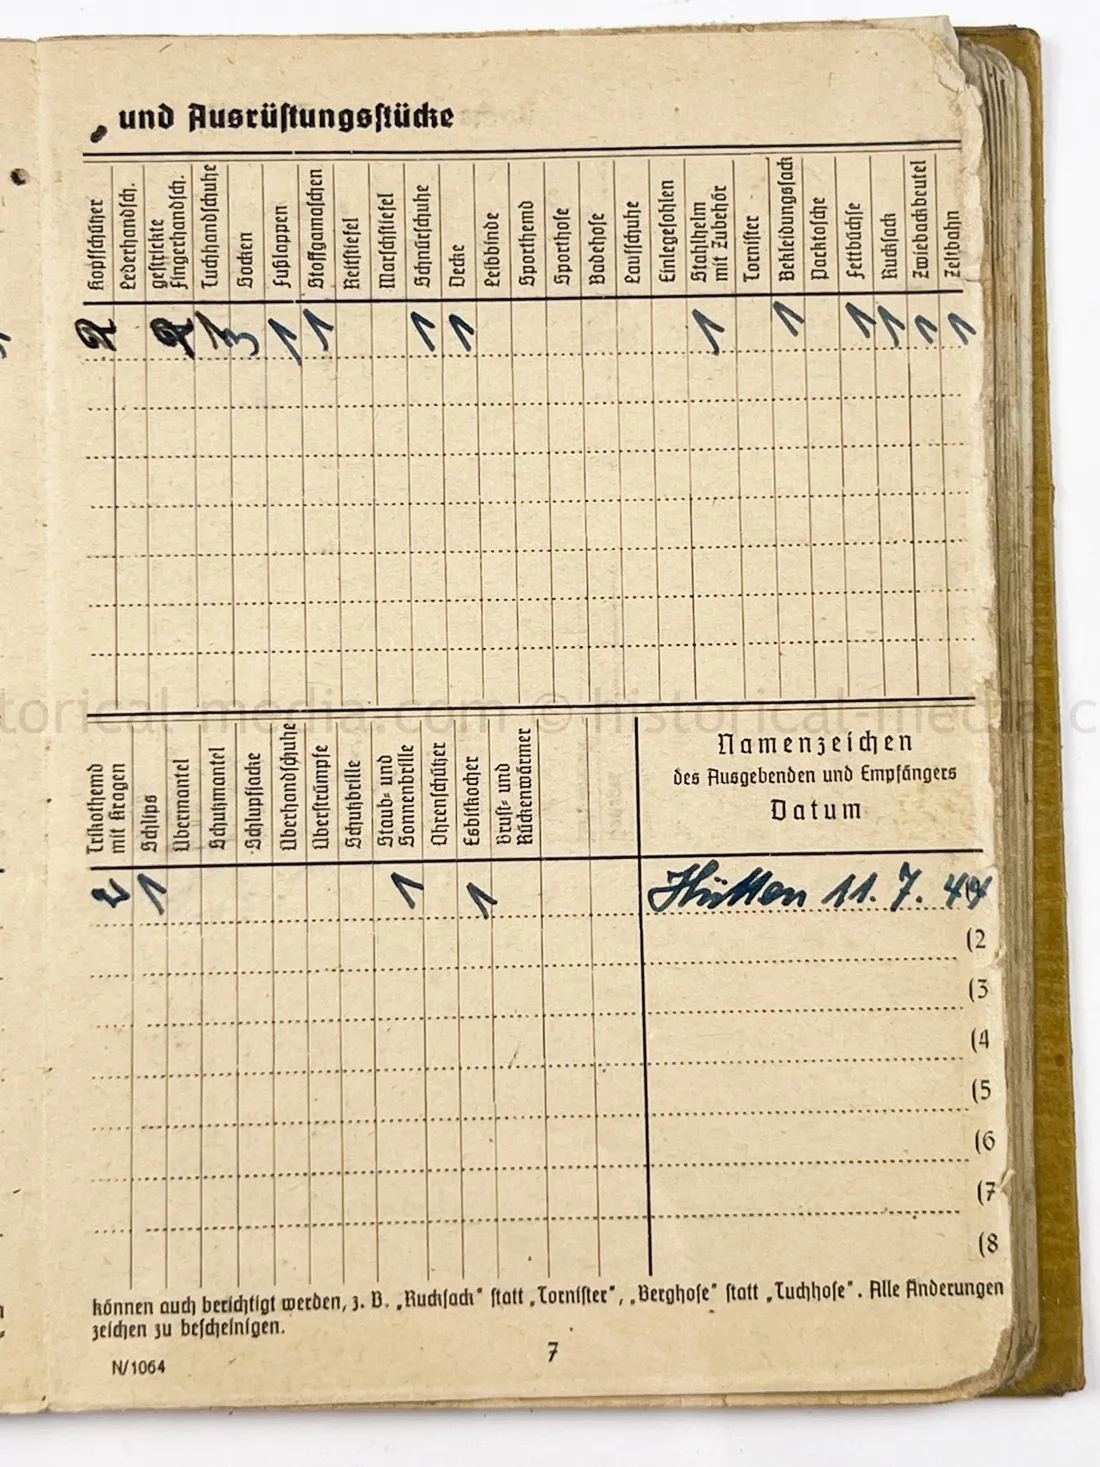 und Ausrüstungsstücke
Kopfschützer
Lederhandsch.
gestrickte
Fingerhandsch.
Tuchhandschuhe
Socken
Fußlappen
Stoffgamaschen
Reitstiefel
Marschstiefel
Schnürschuhe
Decke
Leibbinde
Sporthemd
Sporthose
Badehose
Laufschuhe
Einlegesohlen
Stahlhelm
mit Zubehör
Tornister
Bekleidungssack
Packtasche
Fettbüchse
Rucksack
Zwiebackbeutel
Zeltbahn
2 2 1 3 1 1 1 1 1 1 1 1 1 1
historical-media.com © historical-media.c
Trikothemd
mit Kragen
Schlips
Übermantel
Schutzmantel
Schlupfjacke
Überhandschuhe
Überstrümpfe
Schutzbrille
Staub- und
Sonnenbrille
Ohrenschützer
Esbitkocher
Brust- und
Rückenwärmer
Namenzeichen
des Ausgebenden und Empfängers
Datum
2 1 1 1 Hütten 11. 7. 44
(2
(3
(4
(5
(6
(7
(8
können auch berichtigt werden, z. B. „Rucksack" statt „Tornister", „Berghose" statt „Tuchhose". Alle Änderungen
zeichen zu bescheinigen.
7
N/1064